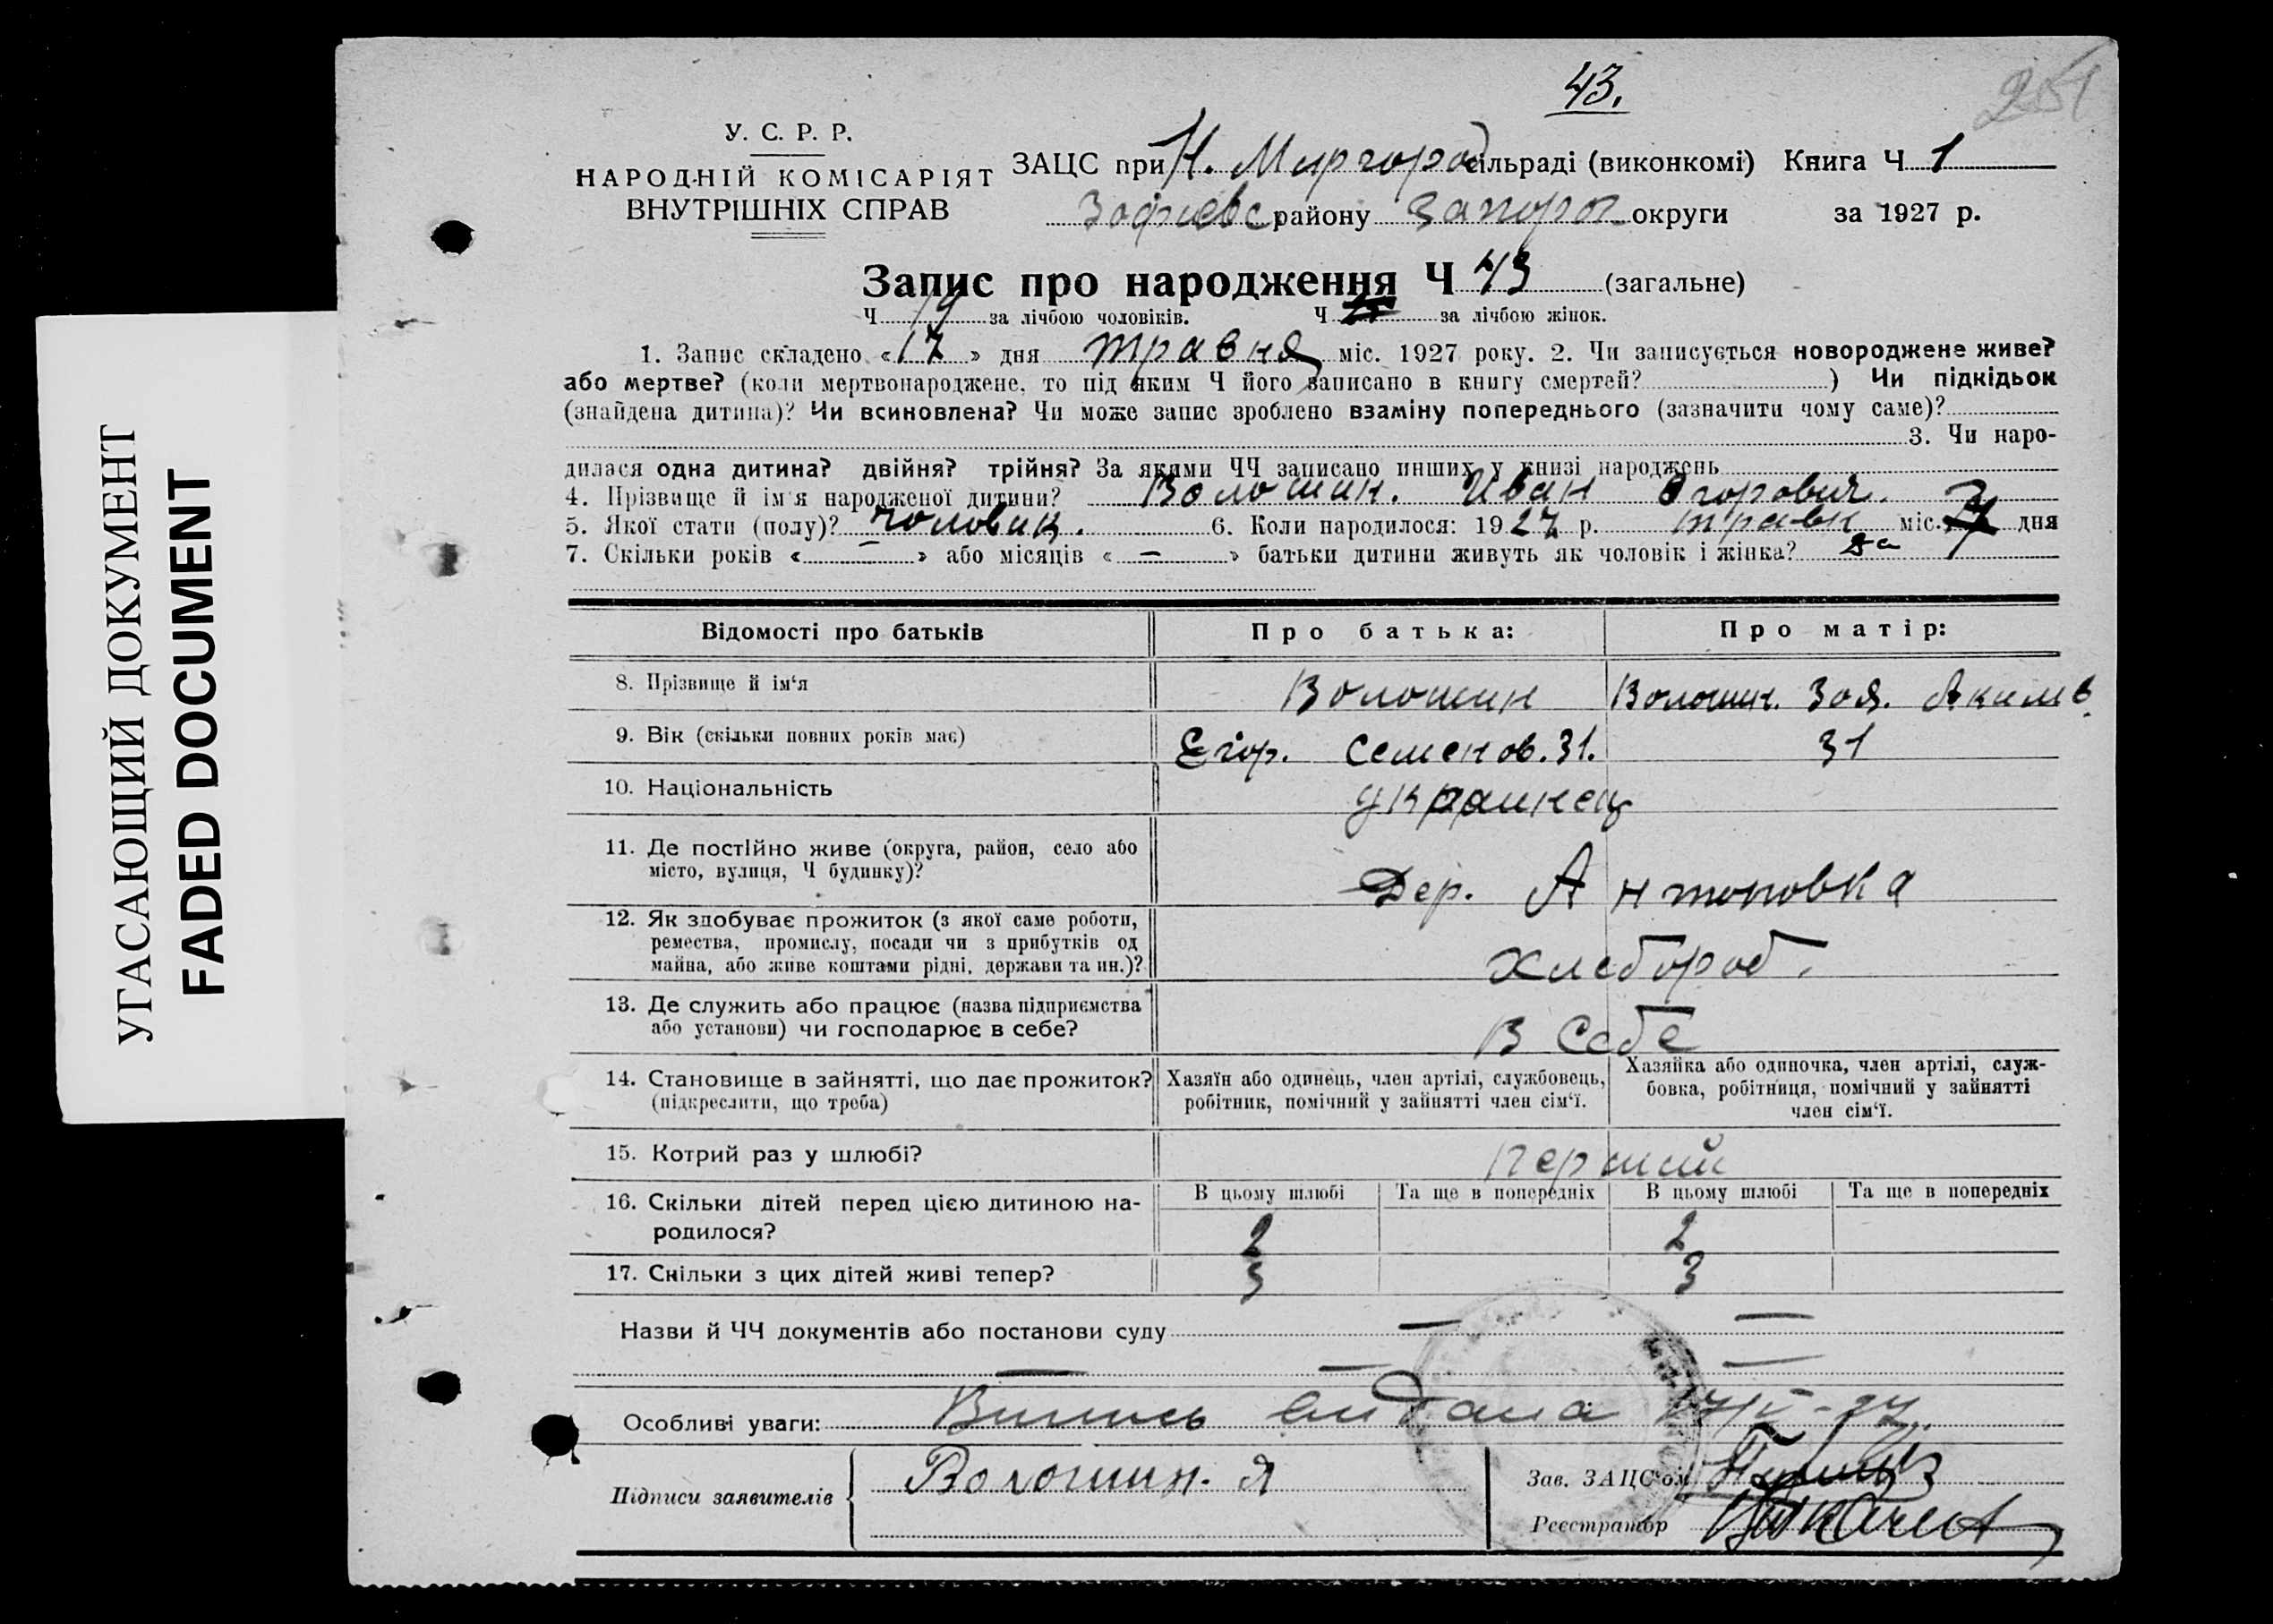 43.
У. С. Р. Р.
НАРОДНІЙ КОМІСАРІЯТ
ВНУТРІШНІХ СПРАВ
ЗАЦС при Н. Миргород сільраді (виконкомі) Книга Ч 1
Зофиевс району Запорог округи за 1927 р.
Запис про народження Ч 43 (загальне)
Ч 19 за лічбою чоловіків. Ч за лічбою жінок.
1. Запис складено «17» дня травня міс. 1927 року. 2. Чи записується новороджене живе?
або мертве? (коли мертвонароджене, то під яким Ч його записано в книгу смертей? ) Чи підкідьок
(знайдена дитина)? Чи всиновлена? Чи може запис зроблено взаміну попереднього (зазначити чому саме)?
3. Чи наро-
дилася одна дитина? двійня? трійня? За якими ЧЧ записано инших у книзі народжень
4. Прізвище й ім'я народженої дитини? Волошин. Иван Егорович.
5. Якої стати (полу)? чоловик. 6. Коли народилося: 1927 р. травн міс. дня
7. Скільки років « — » або місяців « — » батьки дитини живуть як чоловік і жінка? да
Відомості про батьків Про батька: Про матір:
8. Прізвище й ім‘я Волошин Волошин. Зоя. Акимв.
9. Вік (скільки повних років має) Егор. Семенов. 31. 31
10. Національність украинец
11. Де постійно живе (округа, район, село або
місто, вулиця, Ч будинку)? Дер. Антоновка
12. Як здобуває прожиток (з якої саме роботи,
ремества, промислу, посади чи з прибутків од
майна, або живе коштами рідні, держави та ин.)? Хлебороб.
13. Де служить або працює (назва підприємства
або установи) чи господарює в себе? В Себе
14. Становище в зайнятті, що дає прожиток? Хазяїн або одинець, член артілі, службовець, Хазяйка або одиночка, член артілі, служ-
(підкреслити, що треба) робітник, помічний у зайнятті член сім‘ї. бовка, робітниця, помічний у зайнятті
член сім‘ї.
15. Котрий раз у шлюбі? перший
16. Скільки дітей перед цією дитиною на- В цьому шлюбі Та ще в попередніх В цьому шлюбі Та ще в попередніх
родилося? 2 2
17. Скільки з цих дітей живі тепер? 3 3
Назви й ЧЧ документів або постанови суду — —
— — —
Особливі уваги: Випись
Підписи заявителів Волошин. Я Зав. ЗАЦС'ом
Реєстратор
УГАСАЮЩИЙ ДОКУМЕНТ
FADED DOCUMENT